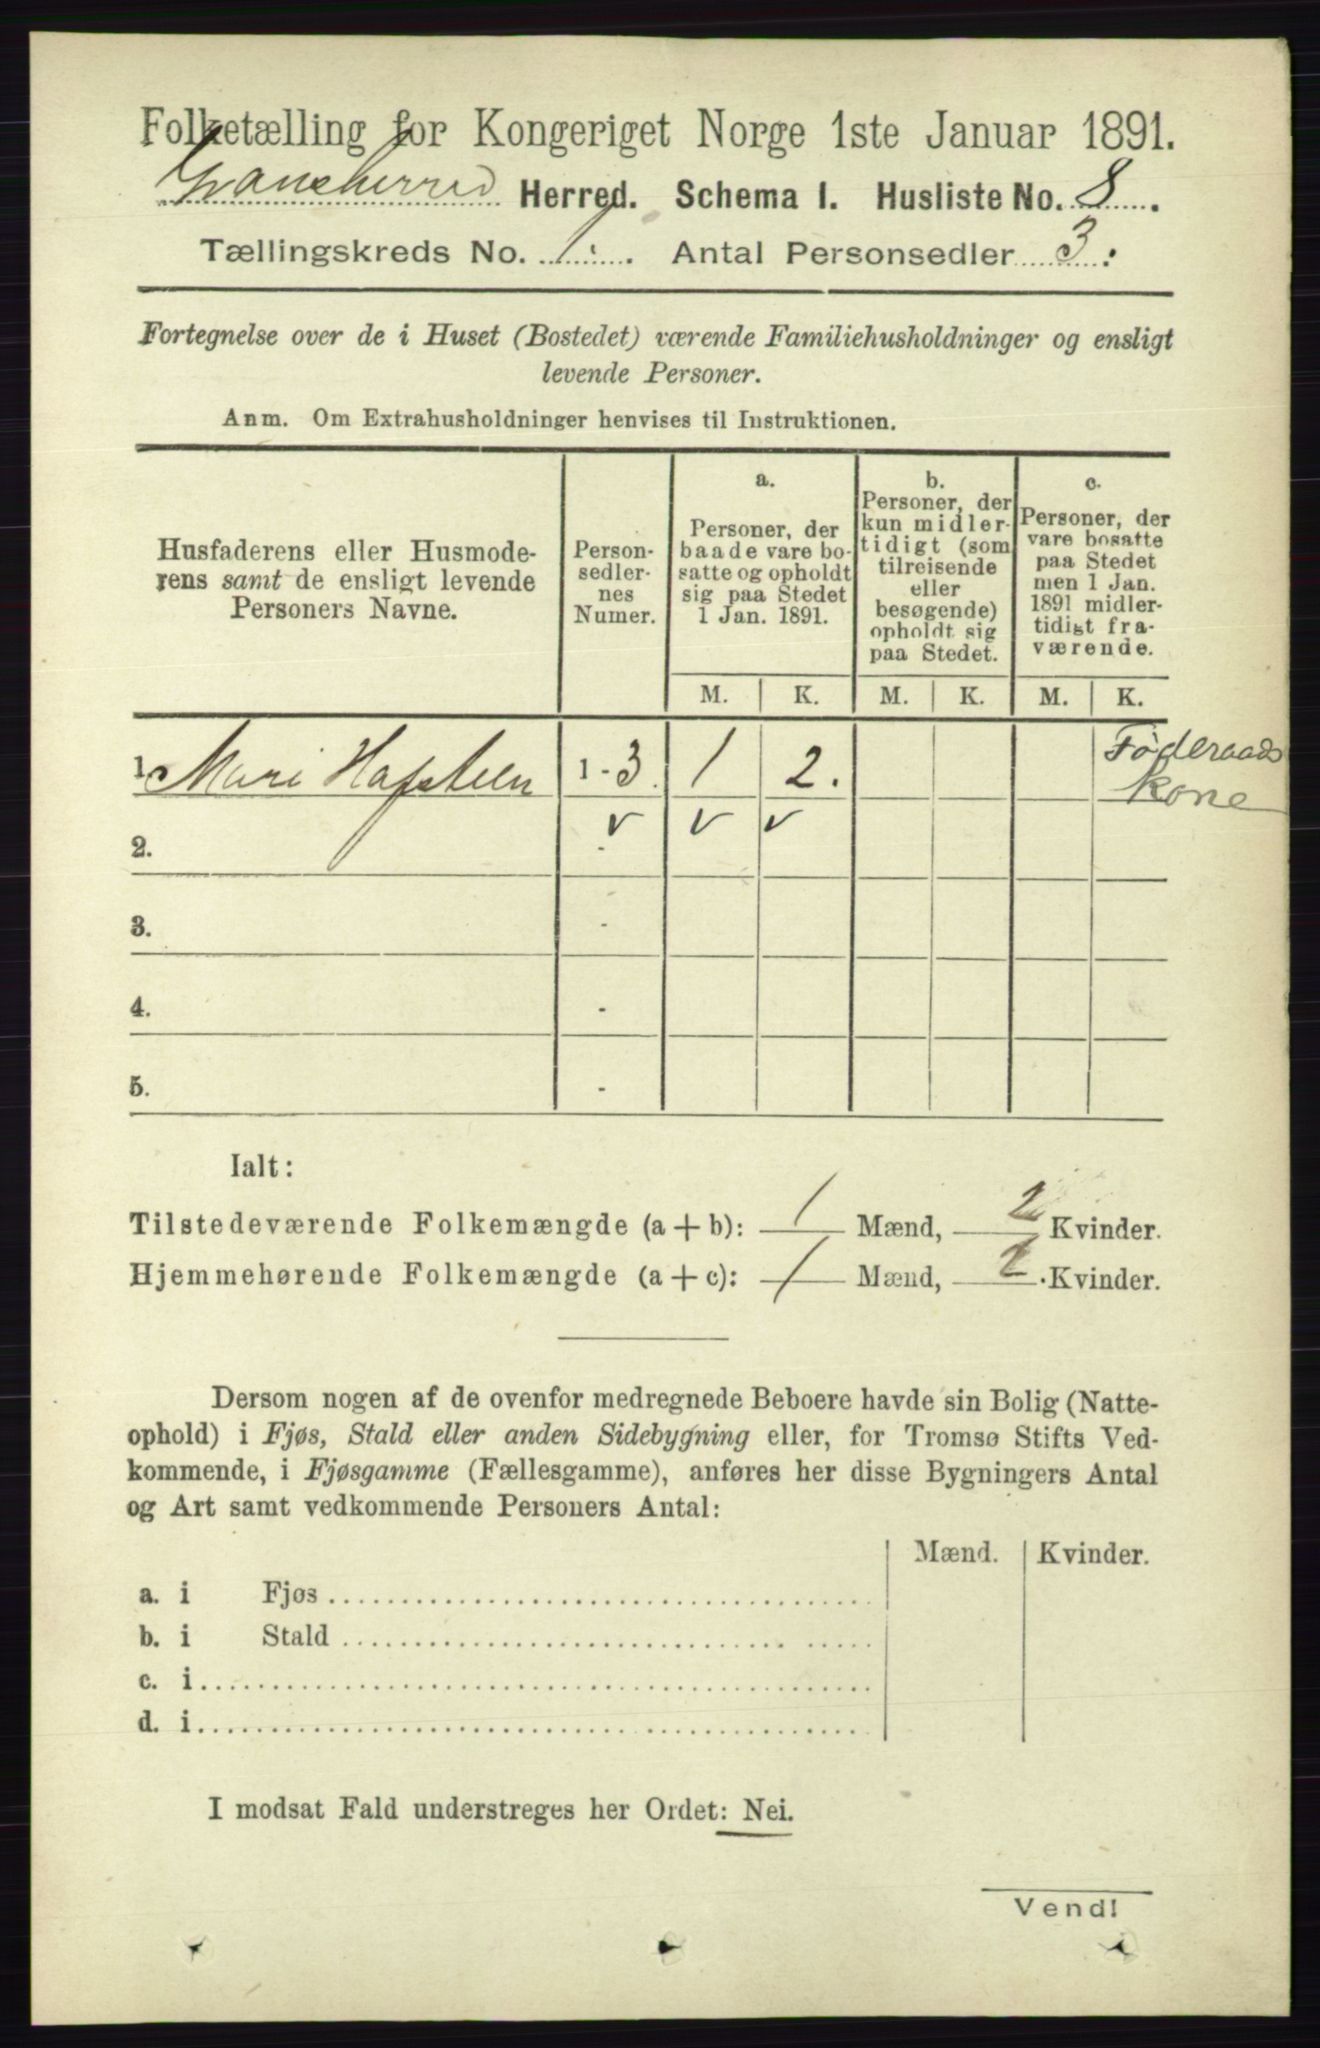 Folketælling for Kongeriget Norge 1ste Januar 1891.
Gransherred Herred. Schema I. Husliste No. 8.
Tællingskreds No. 1. Antal Personsedler 3.
Fortegnelse over de i Huset (Bostedet) værende Familiehusholdninger og ensligt
levende Personer.
Anm. Om Extrahusholdninger henvises til Instruktionen.
Husfaderens eller Husmode-
rens samt de ensligt levende
Personers Navne.
Person-
sedler-
nes
Numer.
a.
Personer, der
baade vare bo-
satte og opholdt
sig paa Stedet
1 Jan. 1891.
b.
Personer, der
kun midler-
tidigt (som
tilreisende
eller
besøgende)
opholdt sig
paa Stedet.
c.
Personer, der
vare bosatte
paa Stedet
men 1 Jan.
1891 midler-
tidigt fra-
værende.
M. K. M. K. M. K.
1. Mari Hafsteen 1 - 3 1 2. Föderaads
Kone
v v v
2. -
3. -
4. -
5. -
Ialt:
Tilstedeværende Folkemængde (a + b): 1 Mænd, 2 Kvinder.
Hjemmehørende Folkemængde (a + c): 1 Mænd, 2 Kvinder.
Dersom nogen af de ovenfor medregnede Beboere havde sin Bolig (Natte-
ophold) i Fjøs, Stald eller anden Sidebygning eller, for Tromsø Stifts Ved-
kommende, i Fjøsgamme (Fællesgamme), anføres her disse Bygningers Antal
og Art samt vedkommende Personers Antal:
Mænd. Kvinder.
a. i Fjøs
b. i Stald
c. i
d. i
I modsat Fald understreges her Ordet: Nei.
Vend!